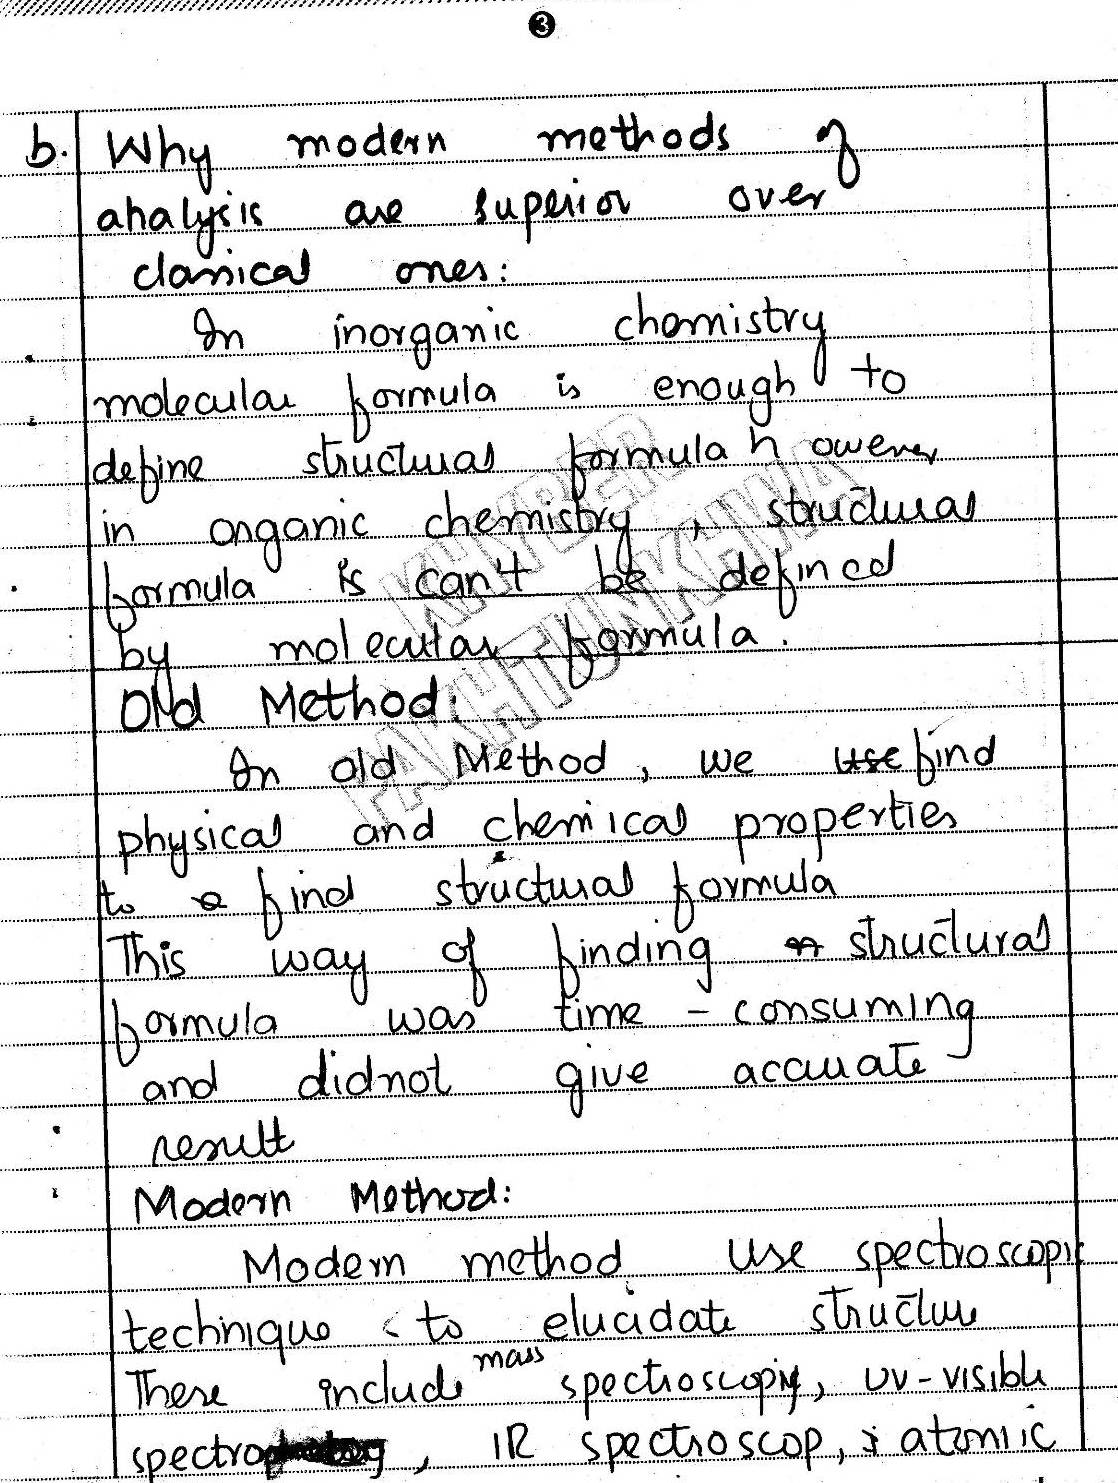 3
b. Why modern methods of
analysis are superior over
classical ones:
In inorganic chemistry
molecular formula is enough to
define structural formula however
in organic chemistry, structural
formula is can't be defined
by molecular formula.
Old Method:
In old Method, we use find
physical and chemical properties
to find structural formula
This way of finding structural
formula was time - consuming
and didnot give accurate
result
Modern Method:
Modern method use spectroscopic
technique to elucidate structure
These include mass spectroscopy, UV-visible
spectro, IR spectroscop, atomic
KHYBER
PAKHTUNKHWA